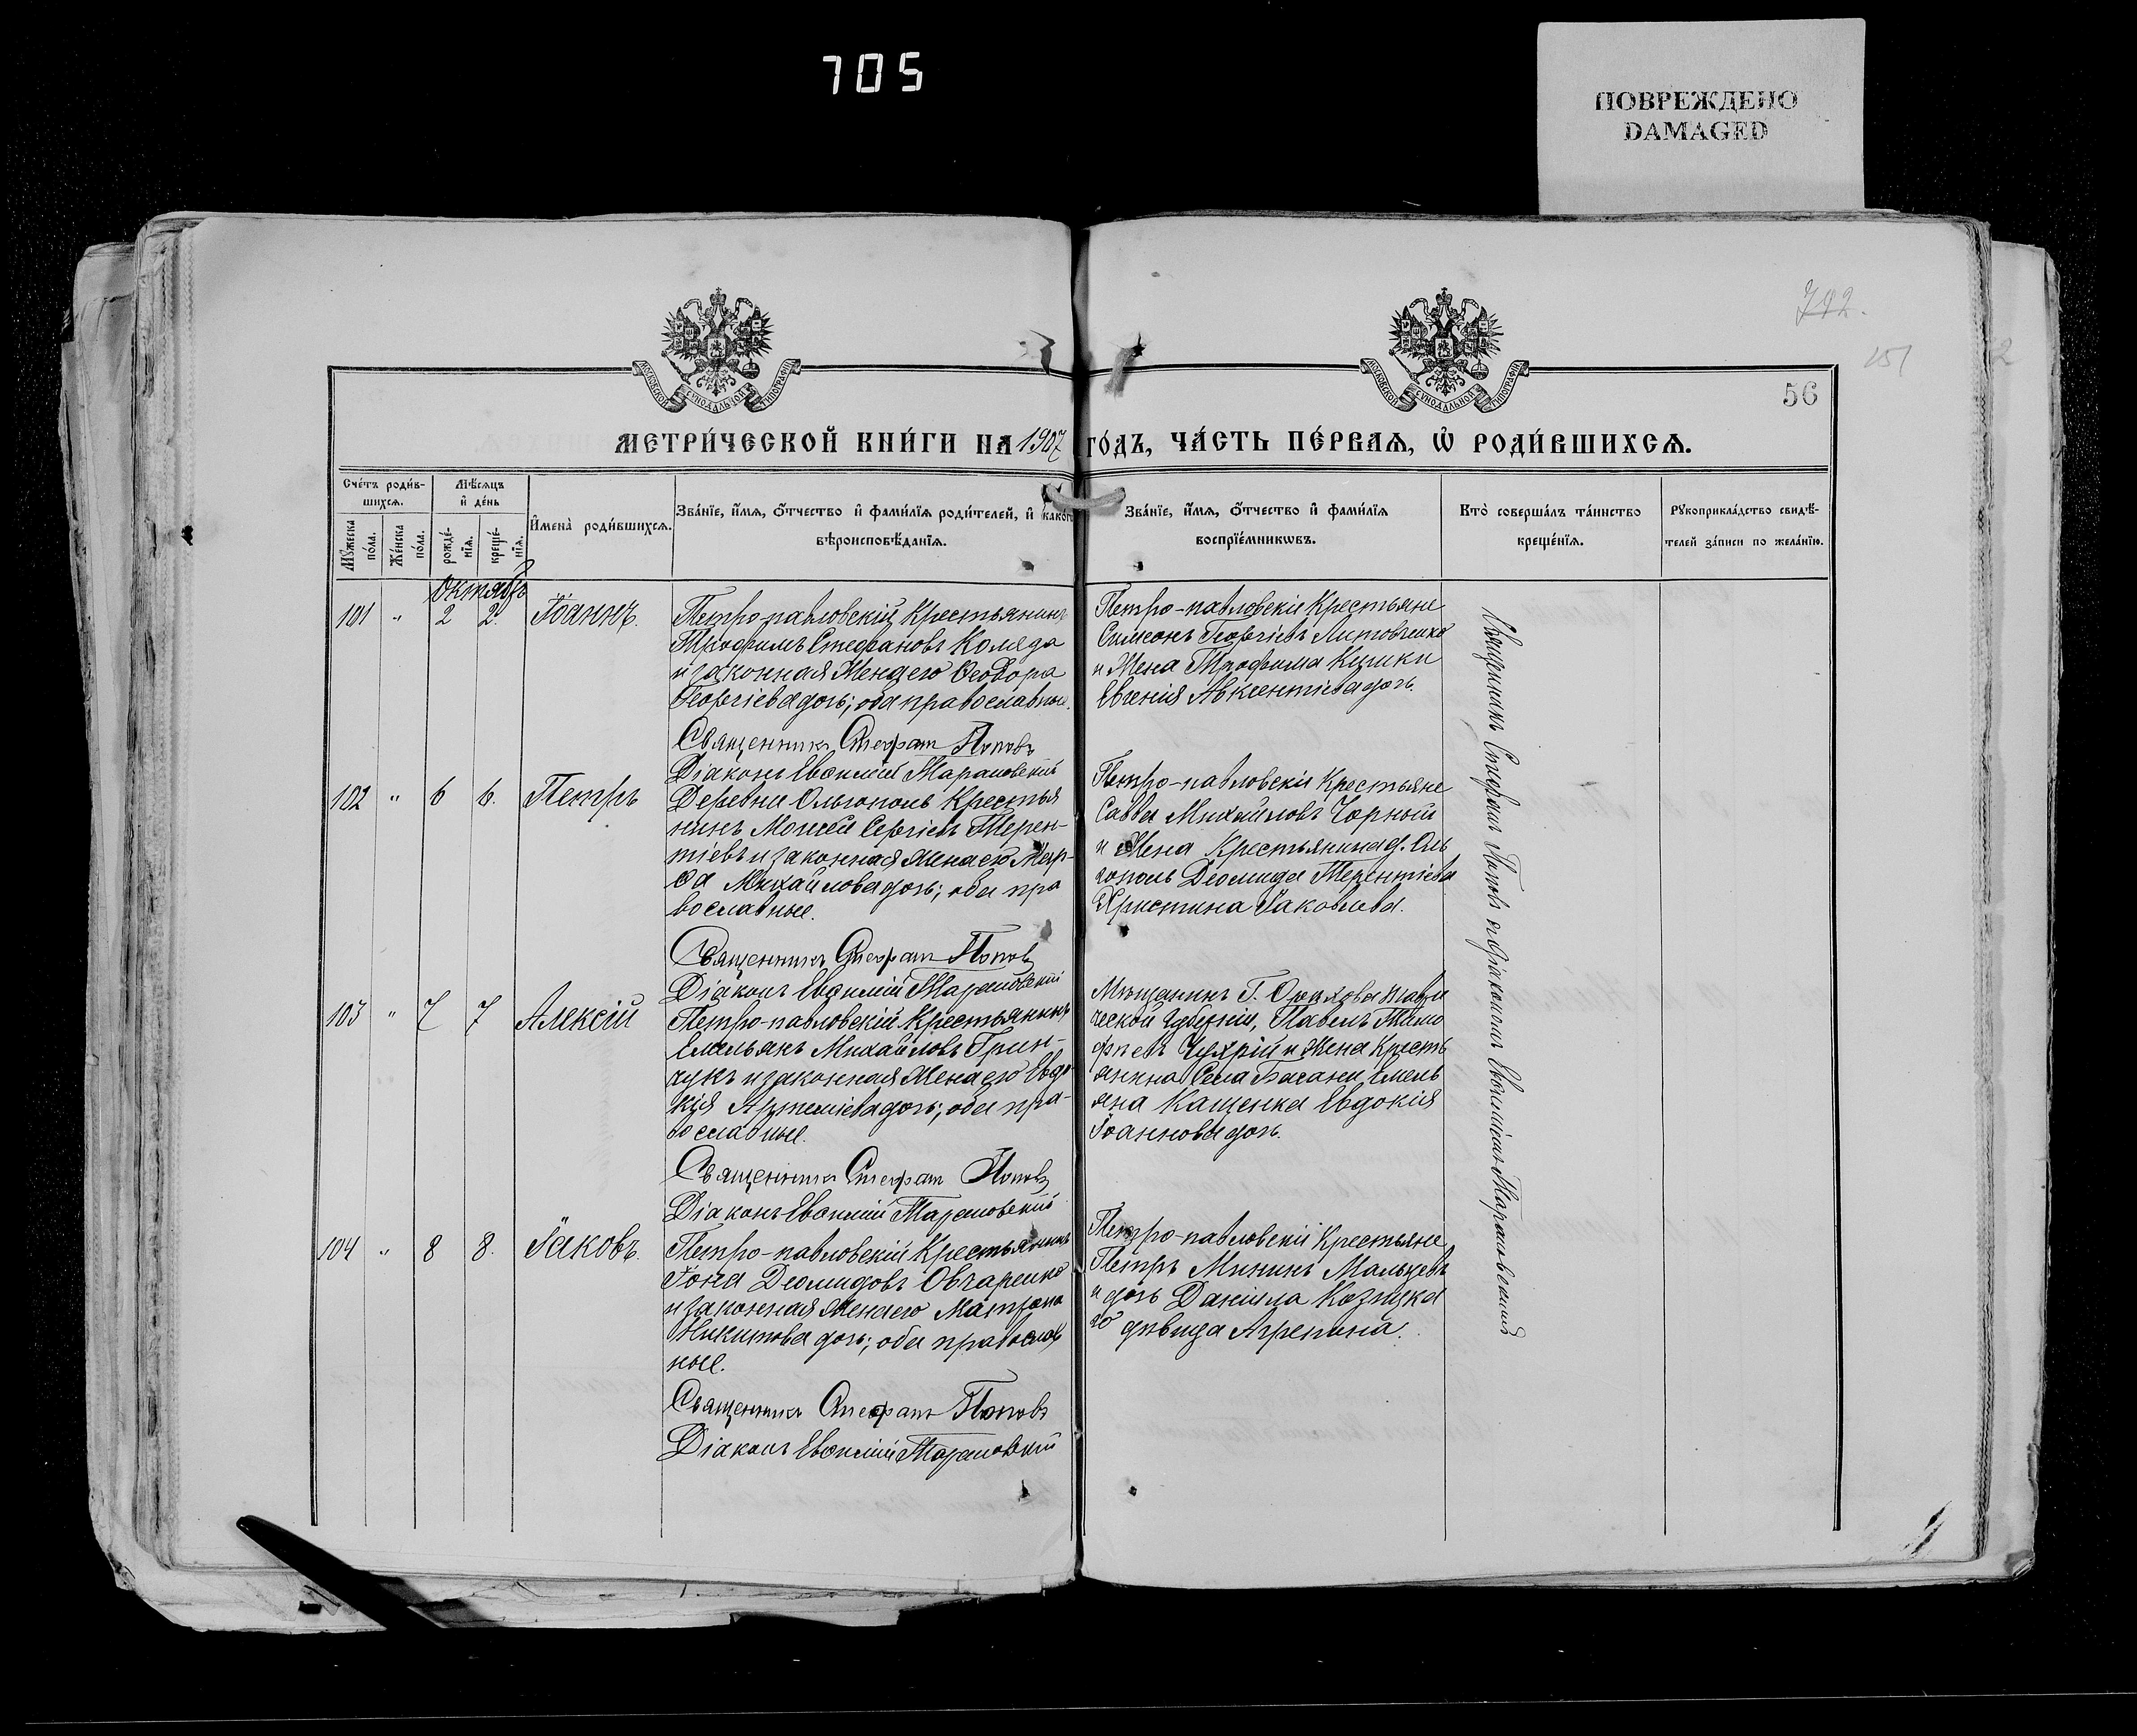 705
ПОВРЕЖДЕНО
DAMAGED
742.
151
2
56
МОСКОВСКОЙ СѴНОДАЛЬНОЙ ТИПОГРАФІИ
МОСКОВСКОЙ СѴНОДАЛЬНОЙ ТИПОГРАФІИ
МЕТРИ́ЧЕСКОЙ КНИ́ГИ НА 1907 ГО́ДЪ, ЧА́СТЬ ПЕ́РВАѦ, Ѡ҆ РОДИ́ВШИХСѦ.
Сче́тъ роди́в-
шихсѧ.
Мꙋ́жеска по́ла.
Же́нска по́ла.
Мѣ́сѧцъ
и҆ де́нь
рожде́-нїѧ.
креще́-нїѧ.
И҆мена̀ роди́вшихсѧ.
Зва́нїе, и҆́мѧ, ѻ҆́тчество и҆ фами́лїѧ роди́телей, и҆ како́гѡ
вѣроисповѣ́данїѧ.
Зва́нїе, и҆́мѧ, ѻ҆́тчество и҆ фами́лїѧ
воспрїе́мникѡвъ.
Кто̀ соверша́лъ та́инство
креще́нїѧ.
Рꙋкоприкла́дство свидѣ́-
телей за́писи по жела́нїю.
Октябрь
101 " 2 2. Іоаннъ.
Петро-павловскій Крестьянинъ
Трофимъ Стефановъ Коляда
и законная Жена его Ѳеодора
Георгіева дочь; оба православные.
Священникъ Стефанъ Поповъ
Діаконъ Евѳимій Тарановскій
Петро-павловскіе Крестьяне
Симеонъ Георгіевъ Литовченко
и Жена Трофима Кушки
Евгенія Авксентіева дочь.
102 " 6 6. Петръ
Деревни Ольгополь Крестья
нинъ Моисей Сергіевъ Терен-
тіевъ и законная Жена его Мар-
ѳа Михайлова дочь; оба пра
вославные.
Священникъ Стефанъ Поповъ
Діаконъ Евѳимій Тарановскій
Петро-павловскіе Крестьяне
Савва Михайловъ Чорный
и Жена Крестьянина д. Оль
гополь Діомида Терентіева
Христина Іаковлева.
103 " 7 7 Алексій
Петро-павловскій Крестьянинъ
Емельянъ Михайловъ Грин-
чукъ и законная Жена его Евдо-
кія Артеміева дочь; оба пра-
вославные.
Священникъ Стефанъ Поповъ
Діаконъ Евѳимій Тарановскій
Мѣщанинъ Г. Орѣхова Таври
ческой Губерніи, Павелъ Тимо
фѣевъ Чухрій и Жена Кресть
янина Села Басани Емель
яна Кащенка Евдокія
Іоаннова дочь.
104 " 8 8. Іаковъ.
Петро-павловскій Крестьянинъ
Іона Деомидовъ Овчаренко
и законная Жена его Матрона
Никитова дочь; оба православ
ные.
Священникъ Стефанъ Поповъ
Діаконъ Евѳимій Тарановскій
Петро-павловскіе Крестьяне
Петръ Мининъ Мальцевъ
и дочь Даніила Козицка
го дѣвица Агрепина.
Священникъ Стефанъ Поповъ съ діакономъ Евѳиміемъ Тарановскимъ